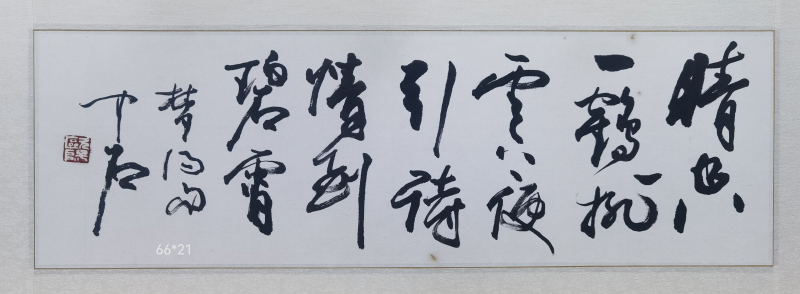 晴空
一鹤排
云上便
引诗
情到
碧霄
梦得句
中石
66*21